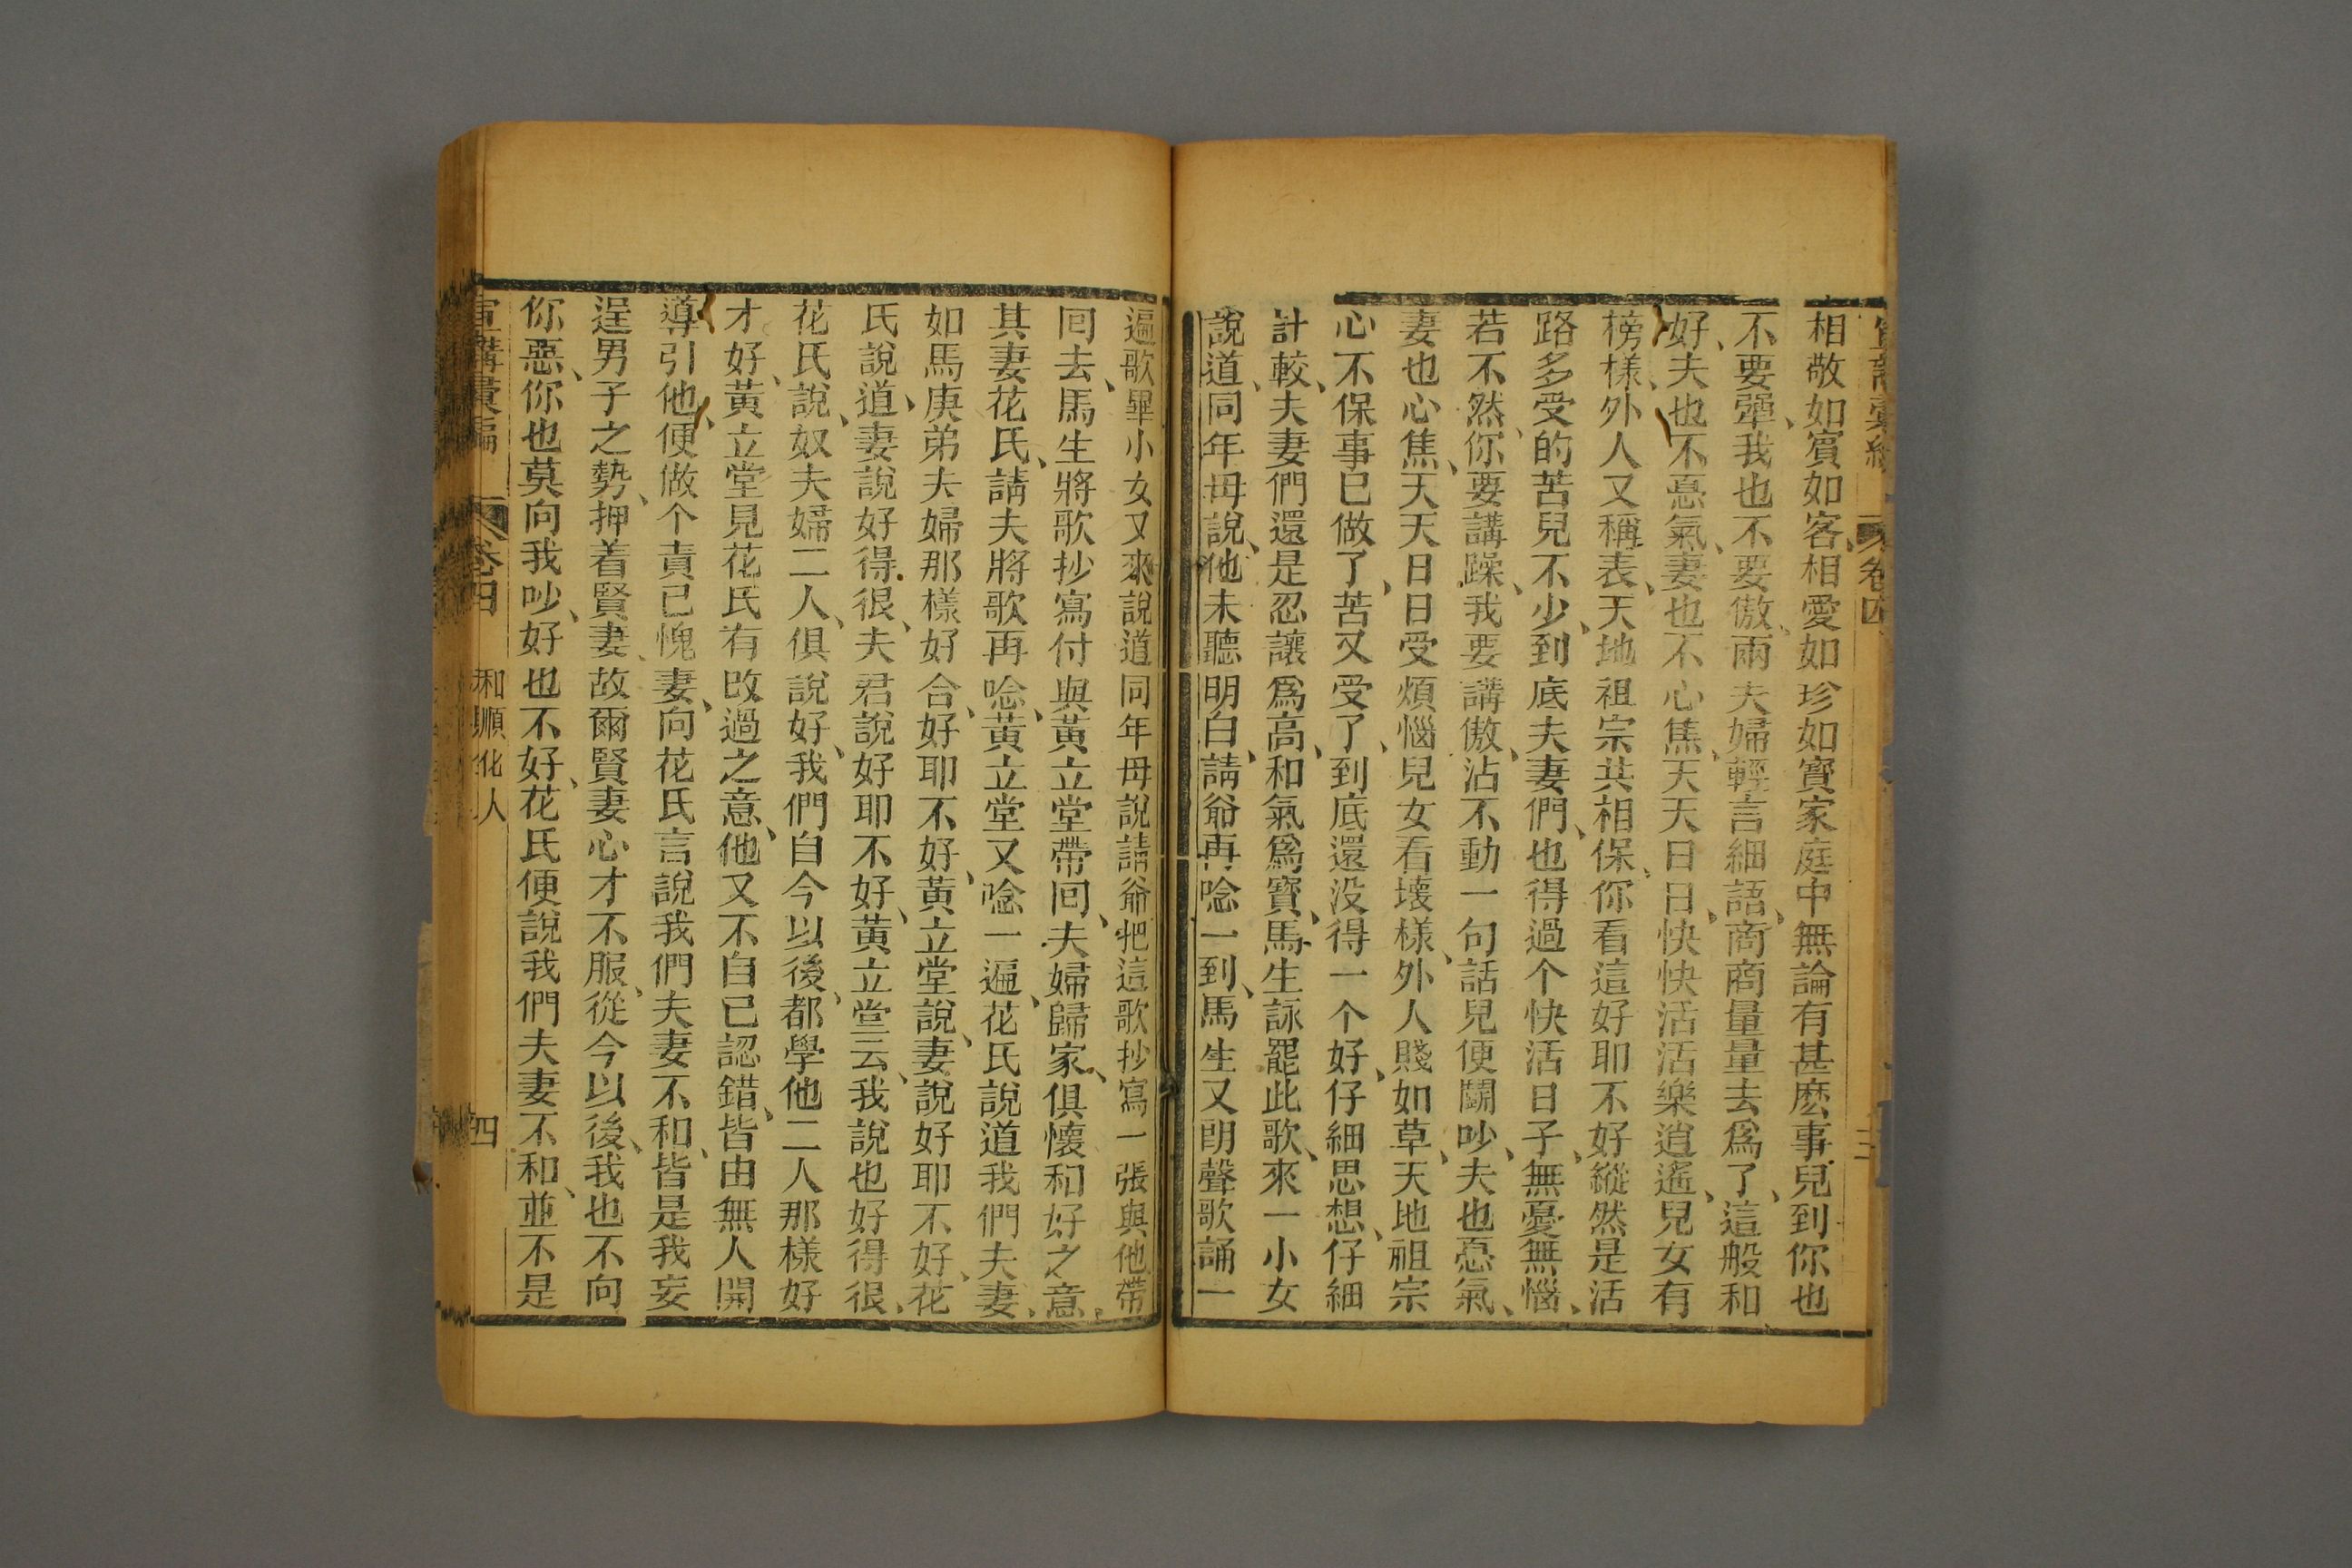 宣講彙編 卷四 三
相敬如賓如客、相愛如珍如寶家庭中無論有甚麽事兒到你也
不要犟、我也不要傲、兩夫婦輕言細語、商商量量去爲了、這般和
好、夫也不慪氣、妻也不心焦、天天日日、快快活活樂逍遙、兒女有
榜樣、外人又稱表、天地祖宗共相保、你看這好耶不好縱然是活
路多受的苦兒不少、到底夫妻們、也得過个快活日子、無憂無惱、
若不然、你要講躁、我要講傲、沾不動一句話兒便鬬吵、夫也慪氣、
妻也心焦、天天日日受煩惱兒女看壞樣、外人賤如草、天地祖宗
心不保事已做了、苦又受了、到底還没得一个好、仔細思想、仔細
計較、夫妻們還是忍讓爲高、和氣爲寶、馬生詠罷此歌、來一小女
說道、同年母說、他未聽明白、請爺再唸一到、馬生又朗聲歌誦一
遍歌畢小女又來說道同年母說請爺把這歌抄寫一張與他帶
回去、馬生將歌抄寫付與黃立堂帶回、夫婦歸家、俱懷和好之意、
其妻花氏、請夫將歌再唸、黃立堂又唸一遍、花氏說道我們夫妻、
如馬庚弟夫婦那樣好合、好耶不好、黃立堂說、妻說好耶不好、花
氏說道、妻說好得很、夫君說好耶不好、黃立堂云、我說也好得很、
花氏說、奴夫婦二人、俱說好、我們自今以後、都學他二人那樣好
才好、黃立堂見花氏有改過之意、他又不自已認錯、皆由無人開
導引他、便做个責己愧妻、向花氏言說我們夫妻不和、皆是我妄
逞男子之勢、押着賢妻、故爾賢妻心才不服、從今以後、我也不向
你惡、你也莫向我吵、好也不好、花氏便說我們夫妻不和、並不是
宣講彙編 卷四 和順化人 四